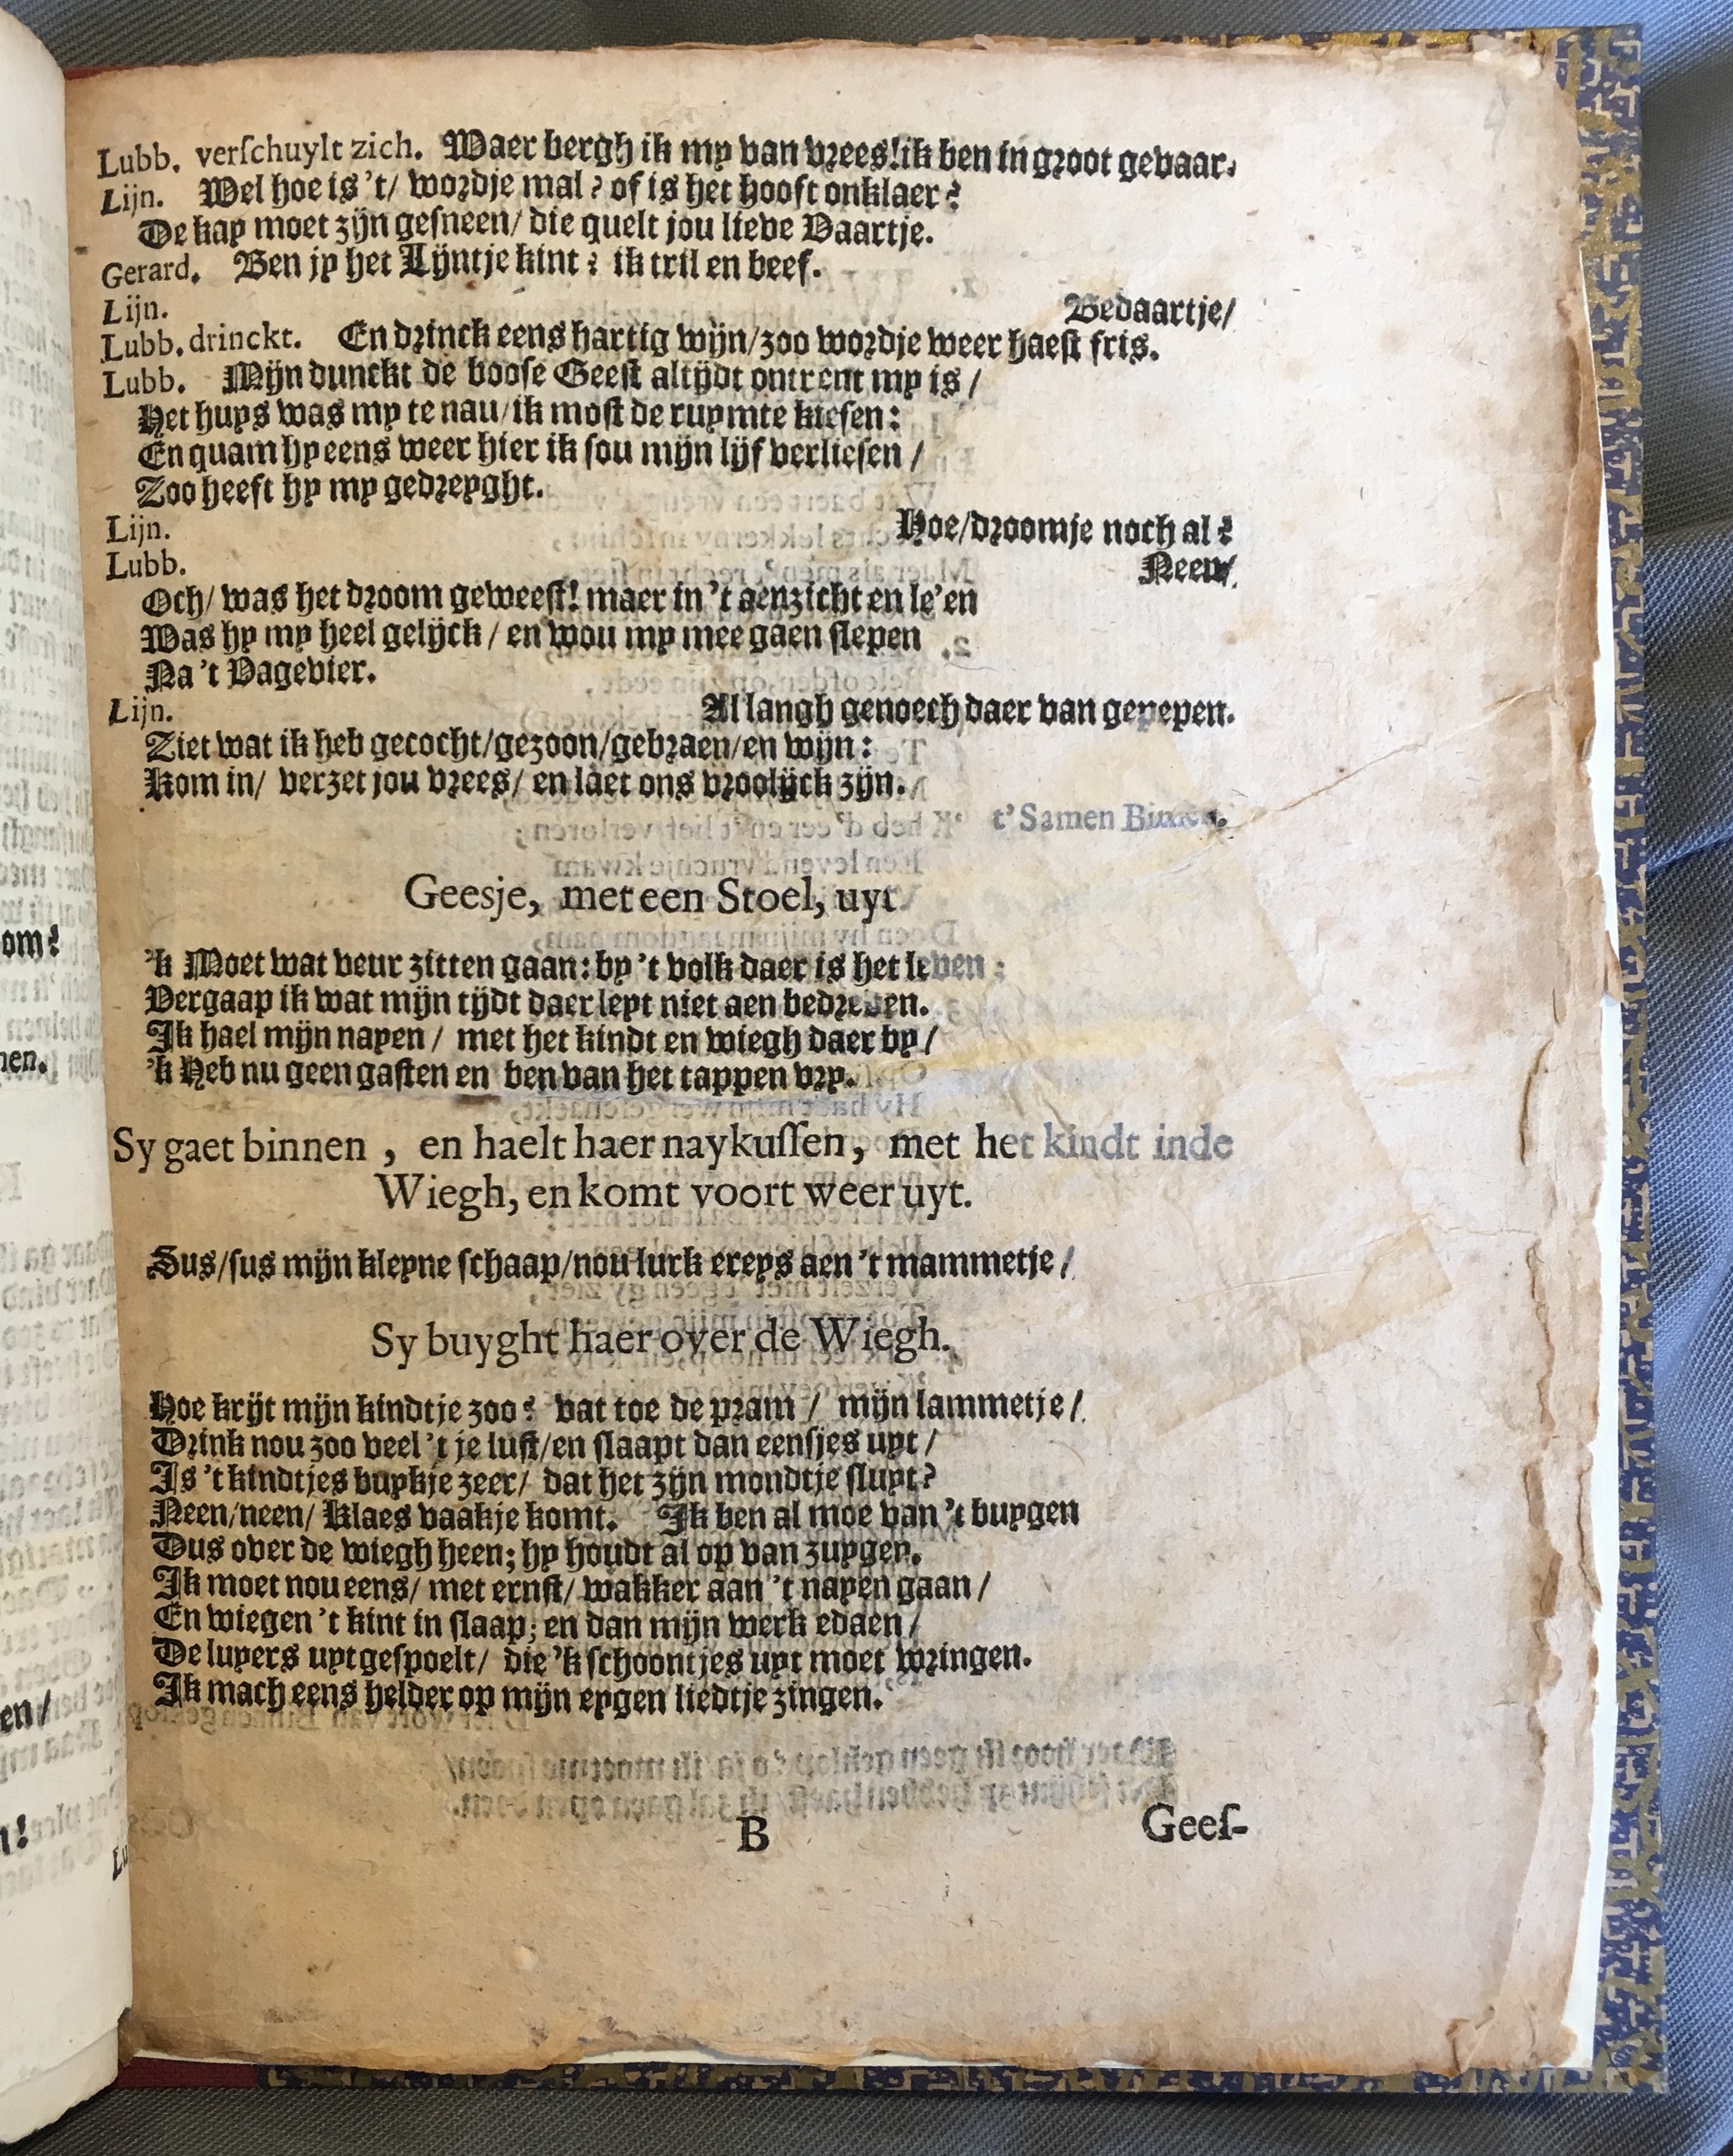 Lubb. verſchuylt zich. Waer bergh ik my van vrees! ik ben in groot gevaar.
Lijn. Wel hoe is 't/ wordje mal? of is het hooft onklaer?
De kap moet zijn geſneen/ die quelt jou lieve Vaartje.
Gerard. Ben jy het Lijntje kint? ik tril en beef.
Lijn. Bedaartje/
Lubb. drinckt. En drinck eens hartig wijn/ zoo wordje weer haeſt fris.
Lubb. Mijn dunckt de booſe Geeſt altijdt ontrent my is/
Het huys was my te nau/ ik moſt de ruymte kieſen:
En quam hy eens weer hier ik ſou mijn lijf verlieſen/
Zoo heeft hy my gedreyght.
Lijn. Hoe/ droomje noch al?
Lubb. Neen/
Och/ was het droom geweeſt! maer in 't aenzicht en le'en
Was hy my heel gelijck/ en wou my mee gaen ſlepen
Na 't Vagevier.
Lijn. Al langh genoech daer van gepepen.
Ziet wat ik heb gecocht/ gezoon/ gebraen/ en wijn:
Kom in/ verzet jou vrees/ en laet ons vroolijck zijn.
t' Samen Binnen.
Geesje, met een Stoel, uyt.
'k Moet wat veur zitten gaan: by 't volk daer is het leven:
Vergaap ik wat mijn tijdt daer leyt niet aen bedreven.
Ik hael mijn nayen/ met het kindt en wiegh daer by/
'k Heb nu geen gaſten en ben van het tappen vry.
Sy gaet binnen, en haelt haer naykuſſen, met het kindt inde
Wiegh, en komt voort weer uyt.
Sus/ ſus mijn kleyne ſchaap/ nou lurk ereys aen 't mammetje/
Sy buyght haer over de Wiegh.
Hoe krijt mijn kindtje zoo? vat toe de pram/ mijn lammetje/
Drink nou zoo veel 't je luſt/ en ſlaapt dan eenſjes uyt/
Is 't kindtjes buykje zeer/ dat het zijn mondtje ſluyt?
Neen/ neen/ Klaes vaakje komt. Ik ben al moe van 't buygen
Dus over de wiegh heen; hy houdt al op van zuygen.
Ik moet nou eens/ met ernſt/ wakker aan 't nayen gaan/
En wiegen 't kint in ſlaap; en dan mijn werk edaen/
De luyers uytgeſpoelt/ die 'k ſchoontjes uyt moet wringen.
Ik mach eens helder op mijn eygen liedtje zingen.
B Geeſ-